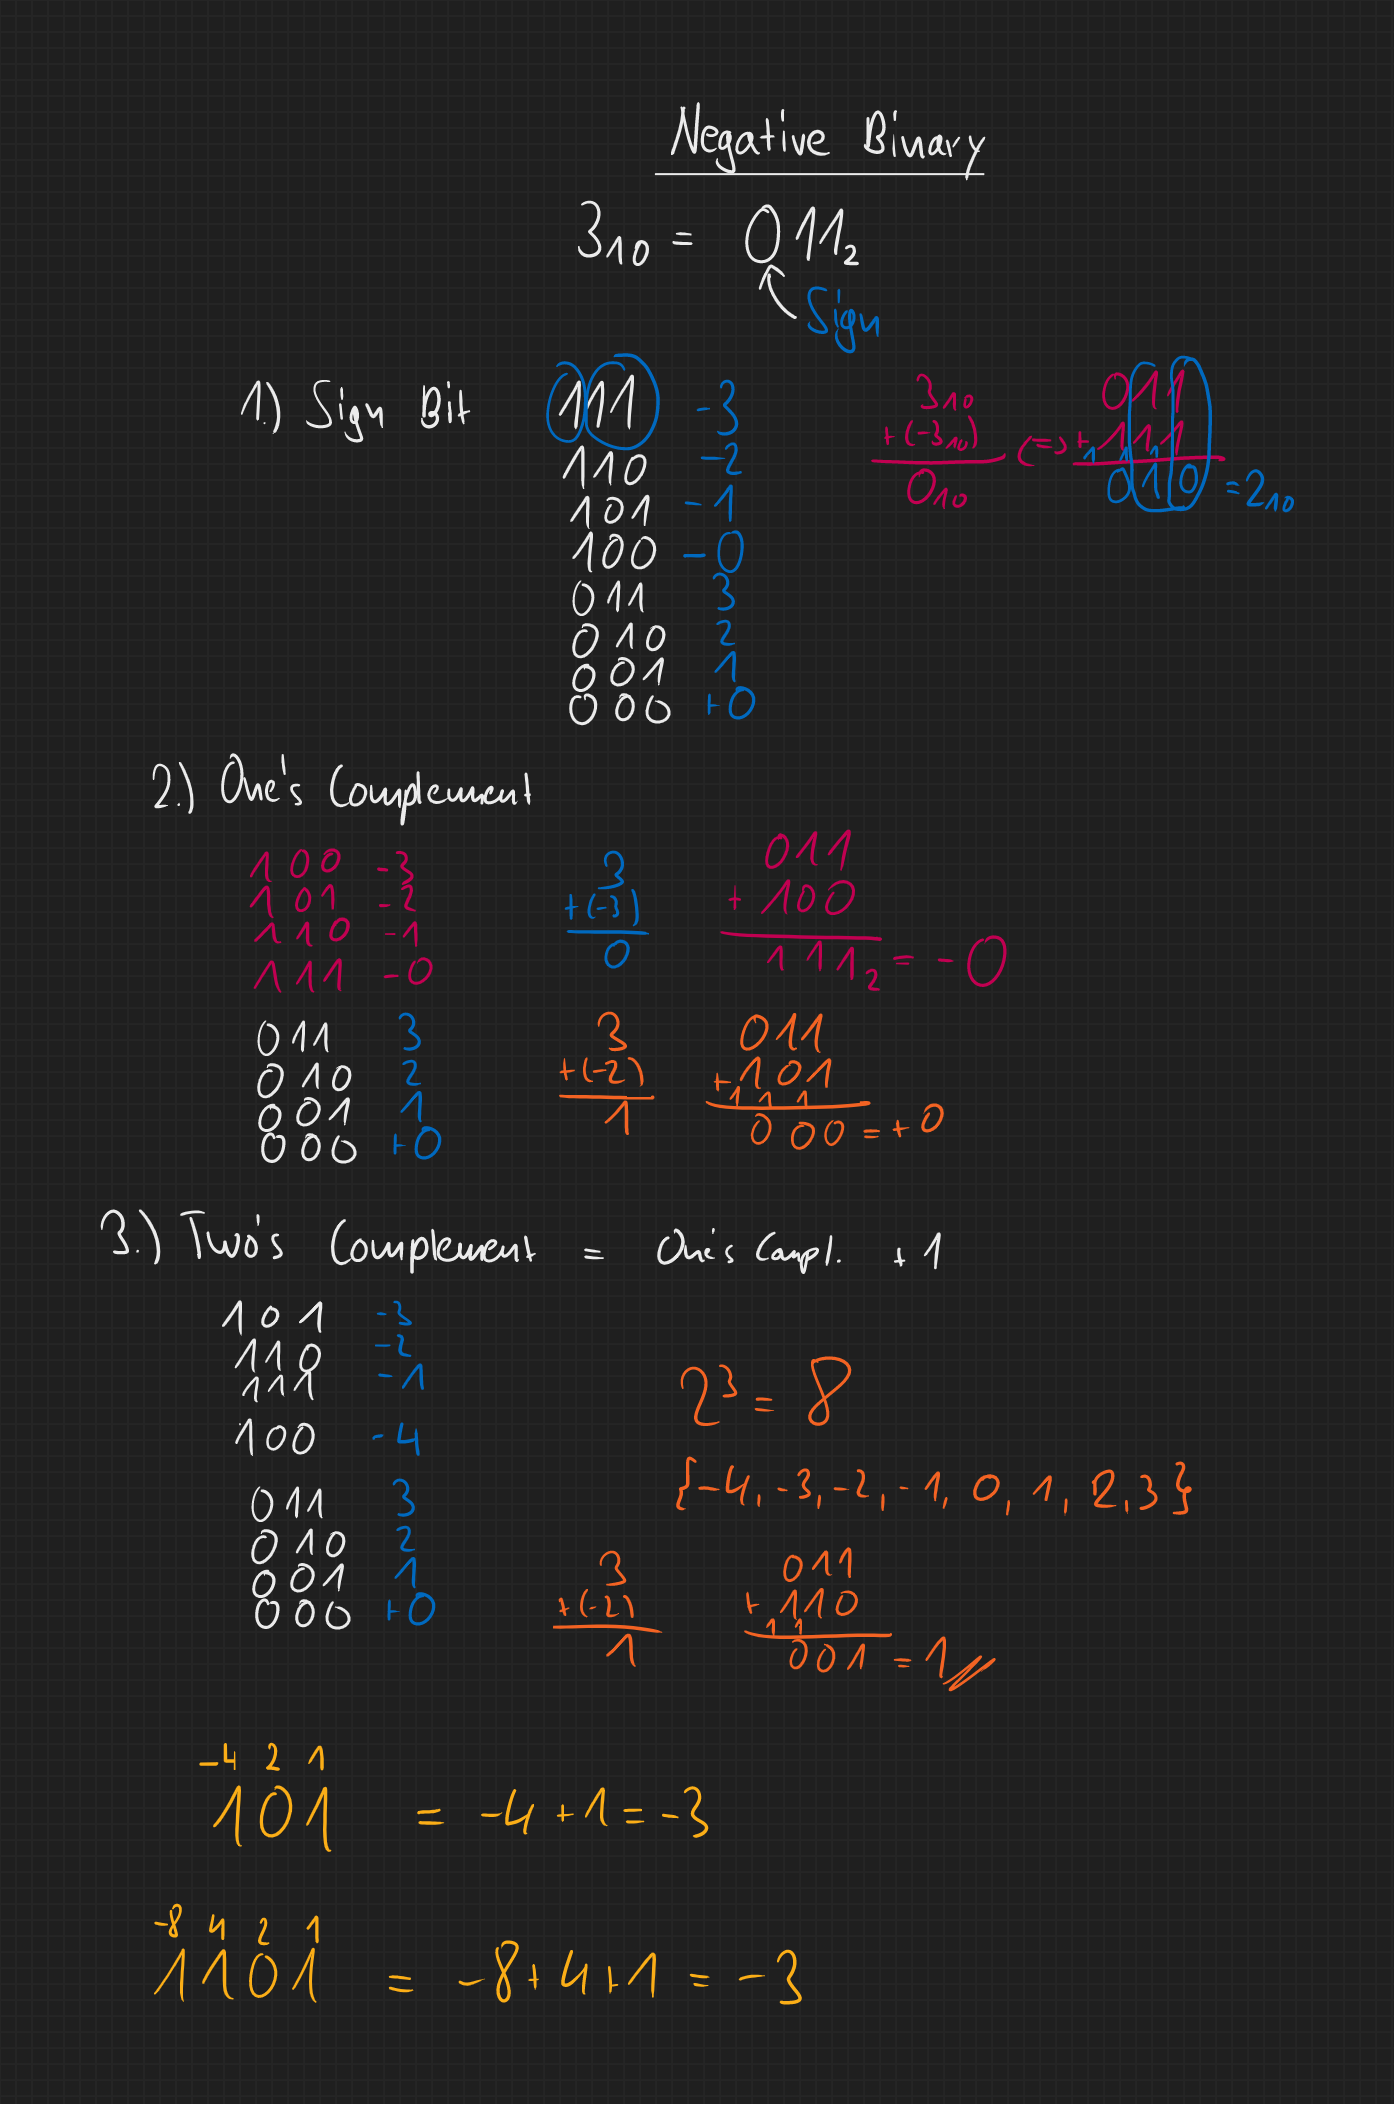 Negative Binary
3₁₀ = 011₂
Sign
1.) Sign Bit
111 -3
110 -2
101 -1
100 -0
011 3
010 2
001 1
000 +0
3₁₀
+(-3₁₀)
0₁₀
(=)
011
+111
1 1 1
010 =2₁₀
2.) One's Complement
100 -3
101 -2
110 -1
111 -0
011 3
010 2
001 1
000 +0
3
+(-3)
0
011
+ 100
111₂ = -0
3
+(-2)
1
011
+101
1 1 1
000 = +0
3.) Two's Complement = One's Compl. +1
101 -3
110 -2
111 -1
100 -4
011 3
010 2
001 1
000 +0
2³ = 8
{-4, -3, -2, -1, 0, 1, 2, 3}
3
+(-2)
1
011
+110
1 1
001 = 1
-4 2 1
101 = -4+1=-3
-8 4 2 1
1101 = -8+4+1 = -3